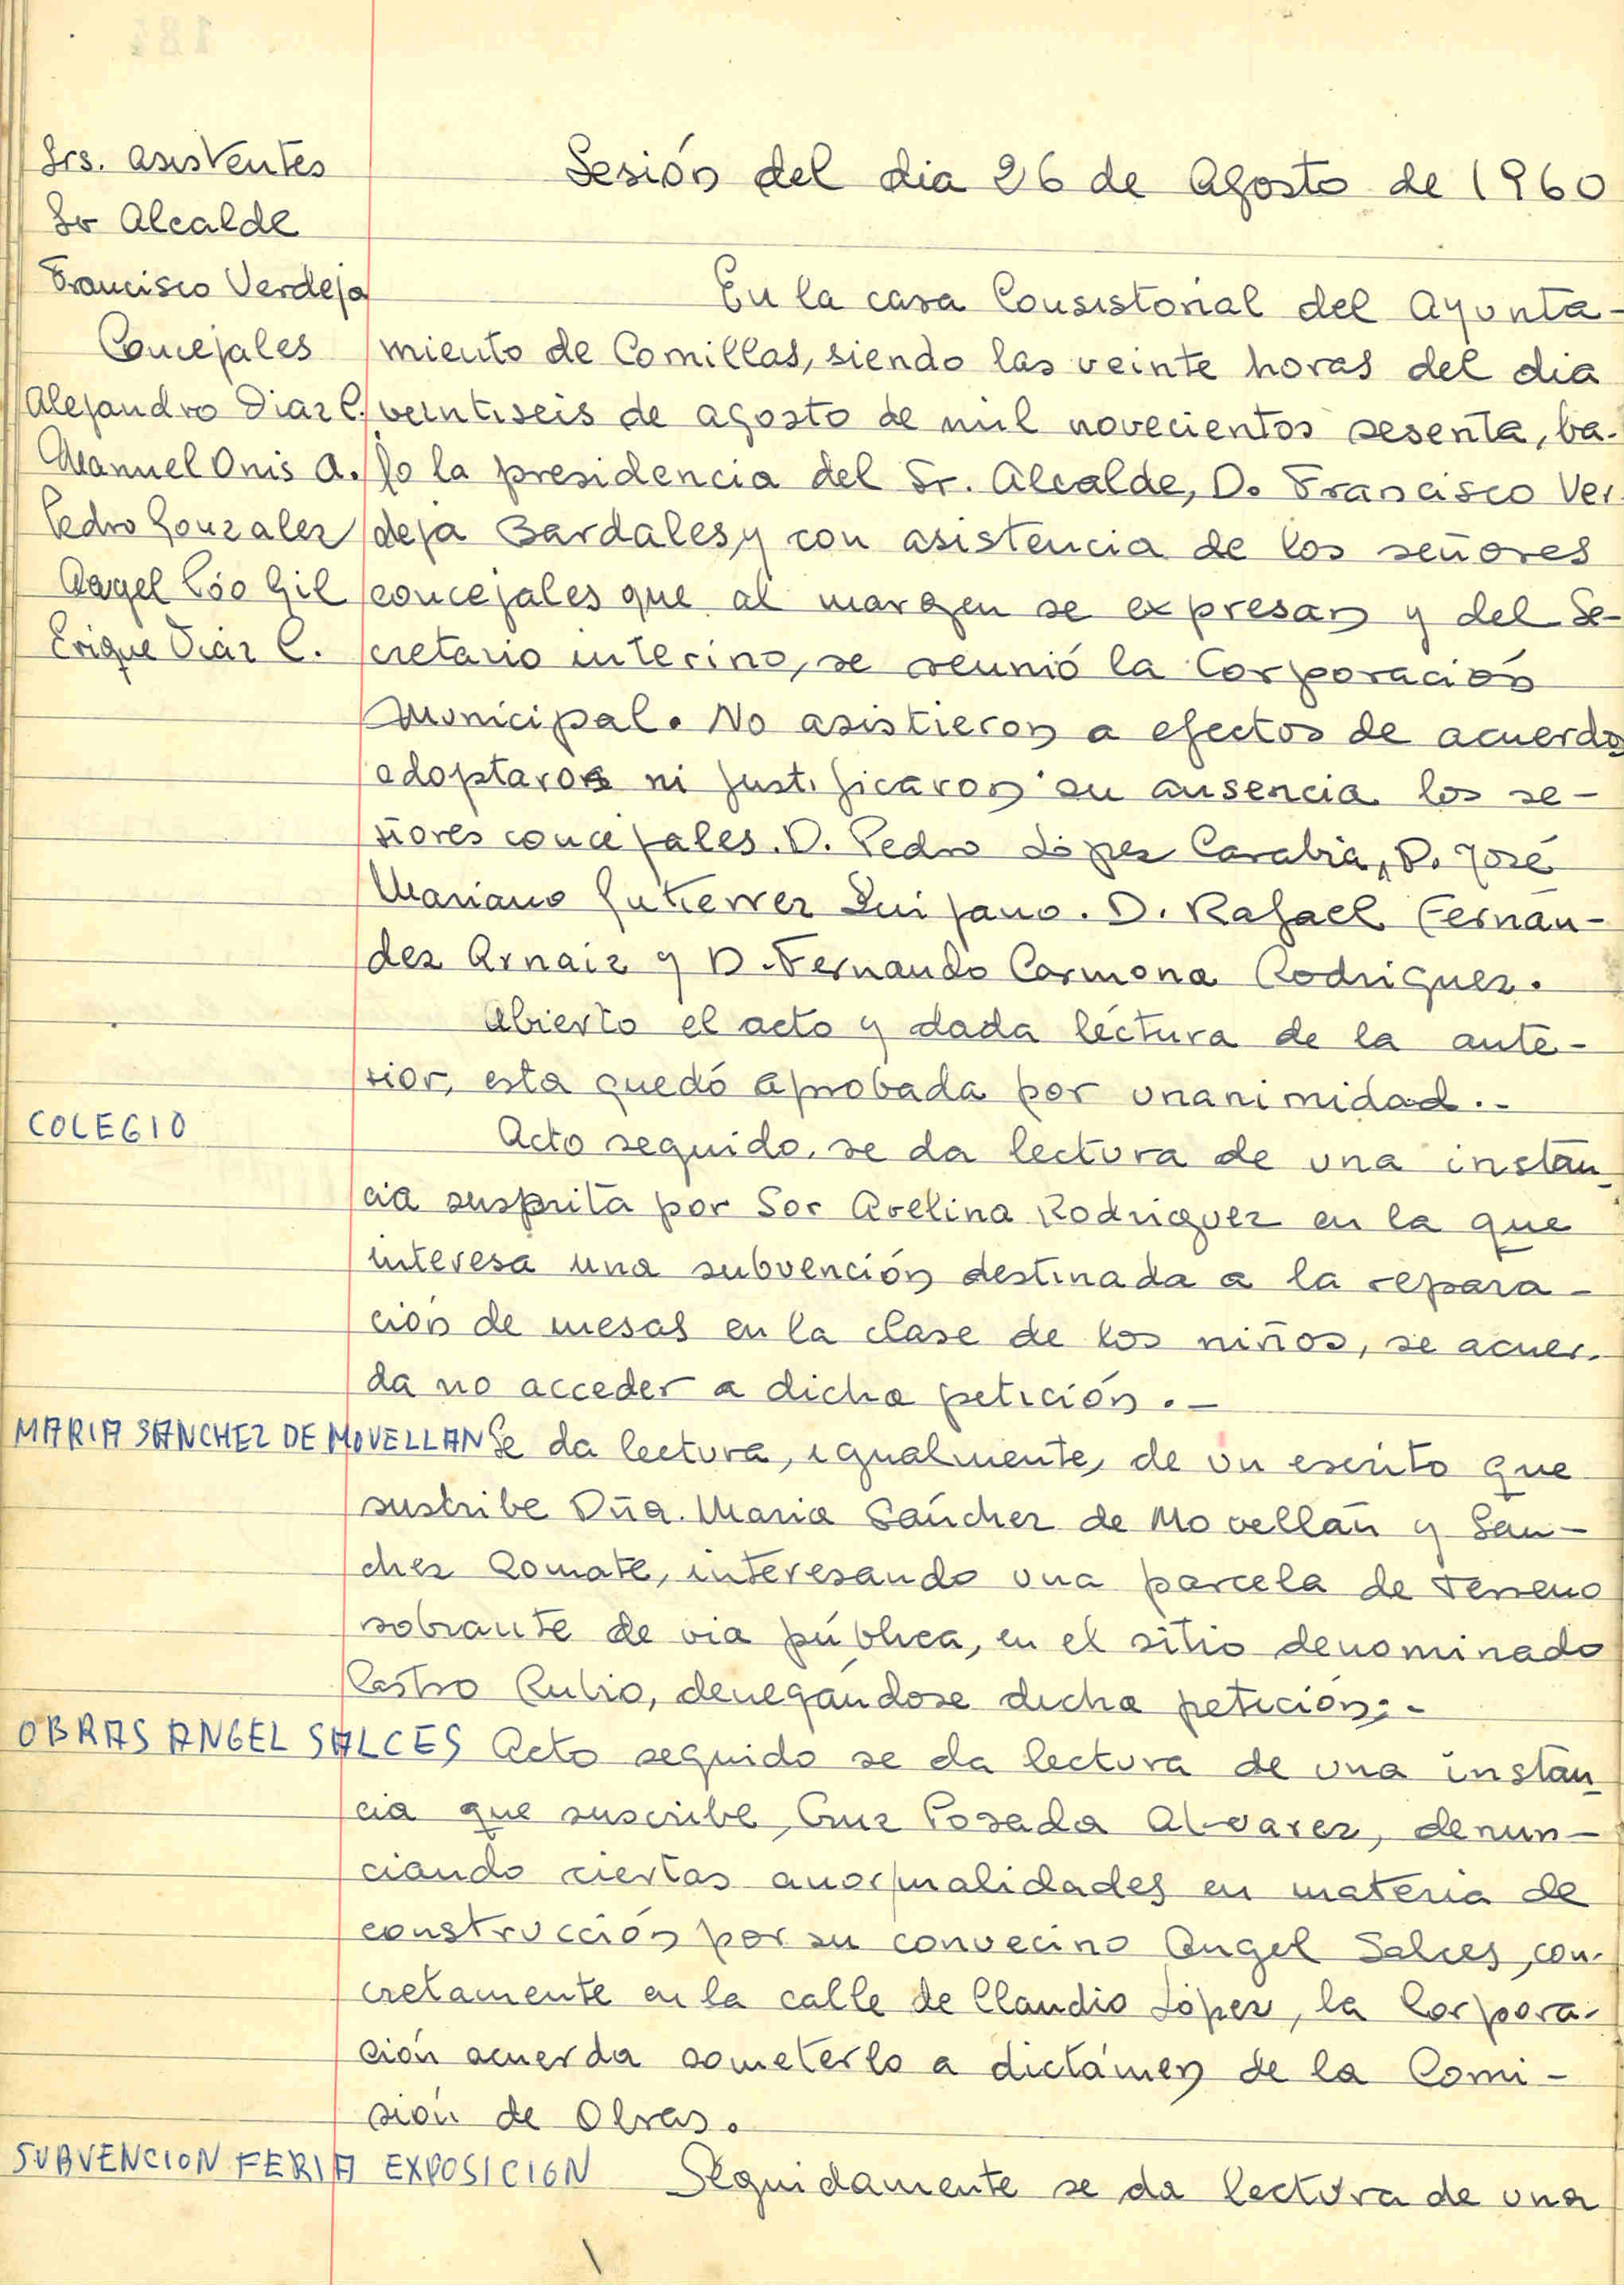 Srs. asistentes
Sr Alcalde
Francisco Verdeja
Concejales
Alejandro Diaz C.
Manuel Onis A.
Pedro Gonzalez
Angel Cóo Gil
Erique Diaz C.
Sesión del dia 26 de Agosto de 1960
En la casa Consistorial del Ayunta-
miento de Comillas, siendo las veinte horas del dia
veintiseis de agosto de mil novecientos sesenta, ba-
jo la presidencia del Sr. Alcalde, D. Francisco Ver
deja Bardales, y con asistencia de los señores
concejales que al margen se expresan y del Se-
cretario interino, se reunió la Corporación
Municipal. No asistieron a efectos de acuerdo
adoptaron ni justificaron su ausencia los se-
ñores concejales. D. Pedro López Carabia, D. José
Mariano Gutierrez Quijano. D. Rafael Fernán-
dez Arnaiz y D. Fernando Carmona Rodriguez.
Abierto el acto y dada lectura de la ante-
rior, esta quedó aprobada por unanimidad.-
COLEGIO
Acto seguido, se da lectura de una instan
cia suscrita por Sor Avelina Rodriguez en la que
interesa una subvención destinada a la repara-
ción de mesas en la clase de los niños, se acuer-
da no acceder a dicha petición.-
MARIA SANCHEZ DE MOVELLAN
Se da lectura, igualmente, de un escrito que
suscribe Dña. Maria Sánchez de Movellán y Sán-
chez Romate, interesando una parcela de terreno
sobrante de via pública, en el sitio denominado
Castro Rubio, denegándose dicha petición;-
OBRAS ANGEL SALCES
Acto seguido se da lectura de una instan
cia que suscribe, Cruz Posada Alvarez, denun-
ciando ciertas anormalidades en materia de
construcción por su convecino Angel Salces, con-
cretamente en la calle de Claudio López, la Corpora-
ción acuerda someterlo a dictámen de la Comi-
sión de Obras.
SUBVENCION FERIA EXPOSICION
Seguidamente se da lectura de una